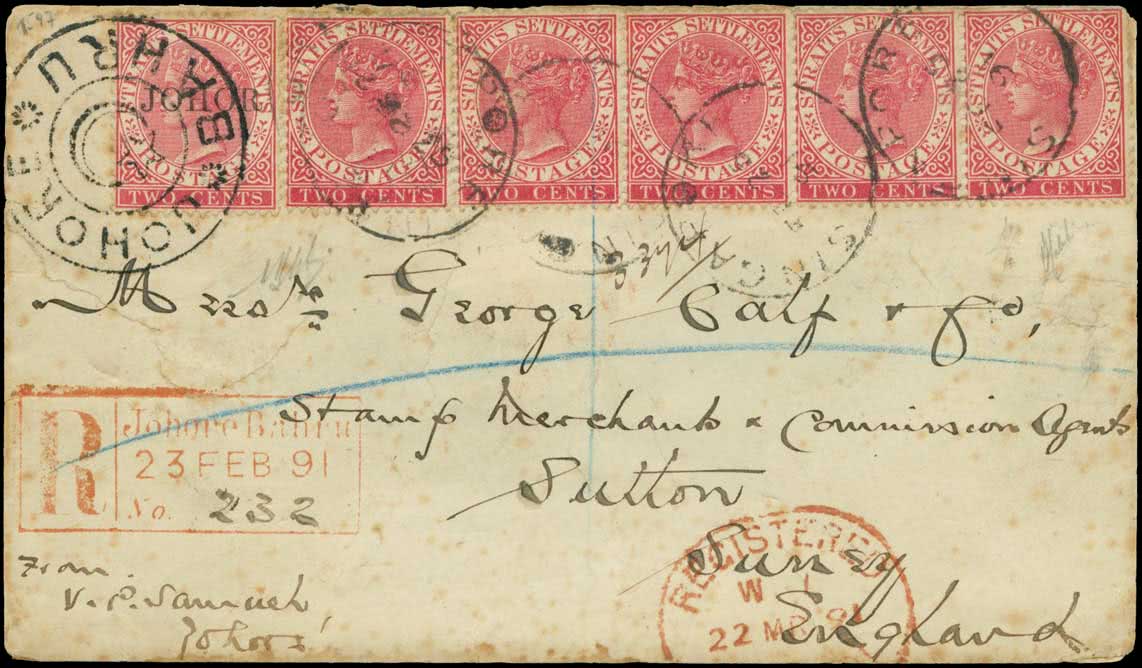 STRAITS SETTLEMENTS STRAITS SETTLEMENTS STRAITS SETTLEMENTS STRAITS SETTLEMENTS STRAITS SETTLEMENTS STRAITS SETTLEMENTS
JOHOR
POSTAGE POSTAGE POSTAGE POSTAGE POSTAGE POSTAGE
TWO CENTS TWO CENTS TWO CENTS TWO CENTS TWO CENTS TWO CENTS
JOHORE BAHRU
SINGAPORE
Messrs George Calf & Co,
Stamp Merchants & Commission Agents
Sutton
Surrey
England
R Johore Bahru
23 FEB 91
No. 232
REGISTERED
22 MR 91
From
V. P. Samuel
Johore